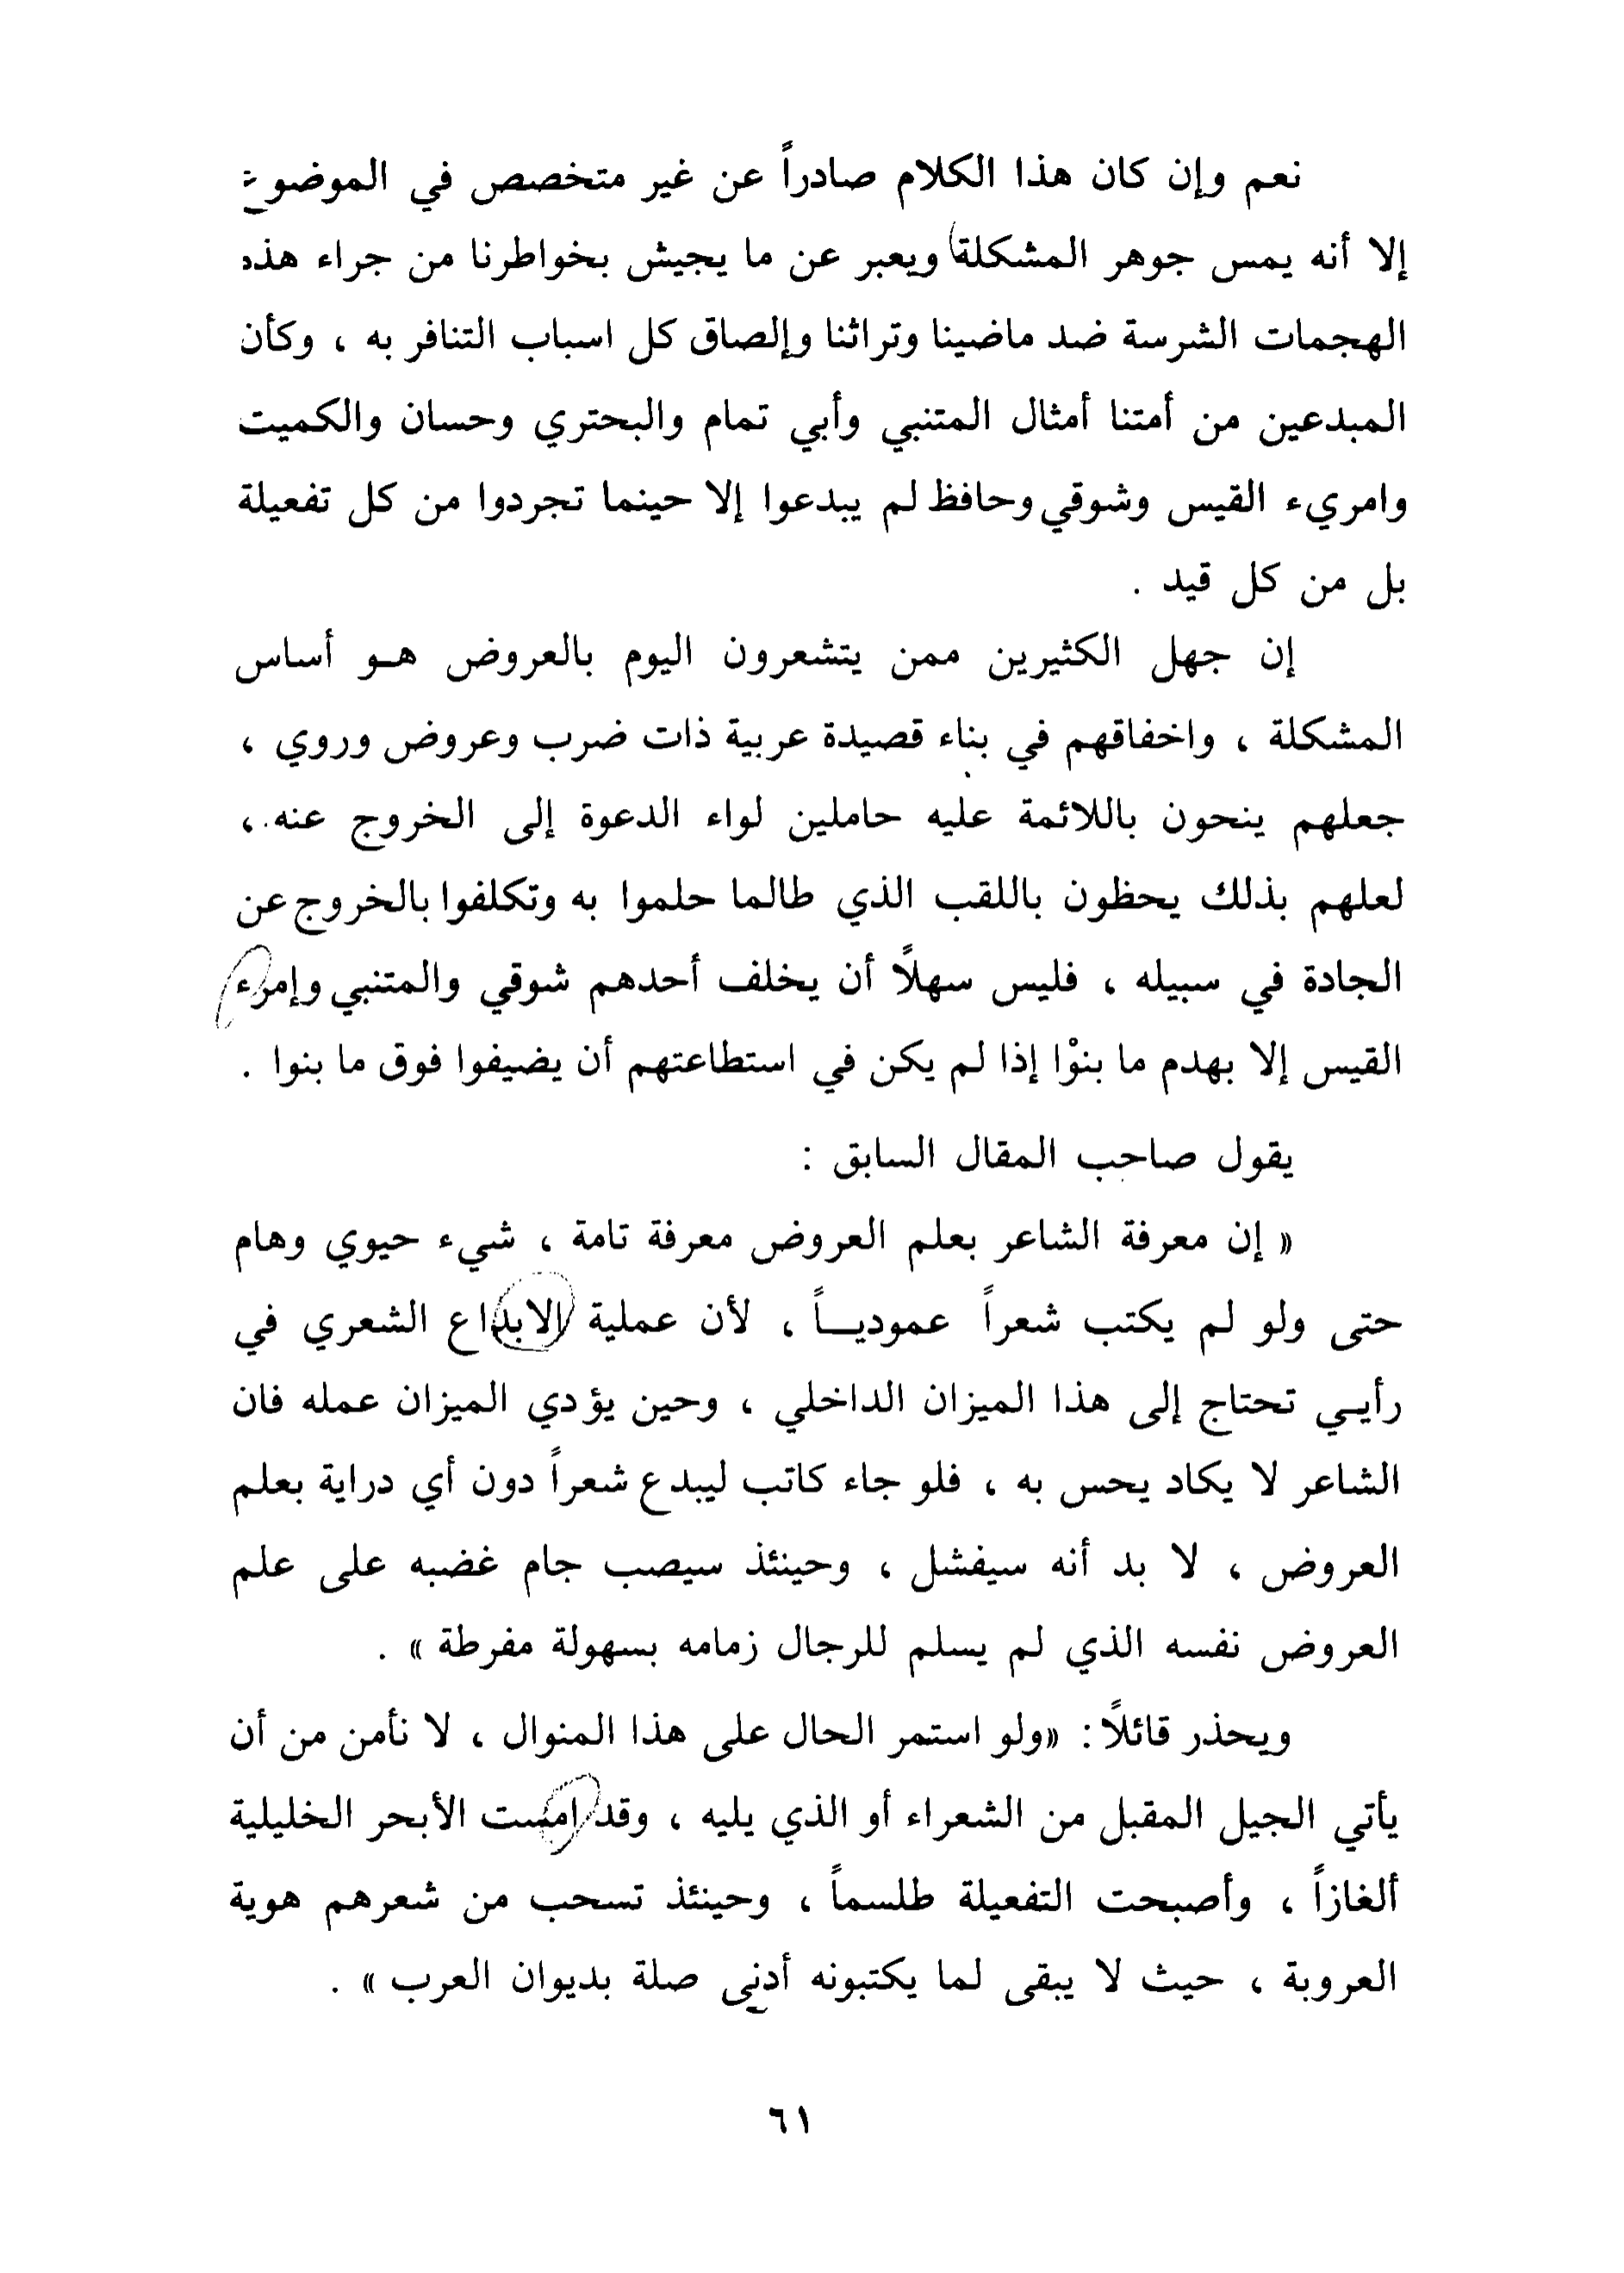 نعم وإن كان هذا الكلام صادراً عن غير متخصص في الموضوع
إلا أنه يمس جوهر المشكلة ويعبر عن ما يجيش بخواطرنا من جراء هذه
الهجمات الشرسة ضد ماضينا وتراثنا وإلصاق كل اسباب التنافر به ، وكأن
المبدعين من أمتنا أمثال المتنبي وأبي تمام والبحتري وحسان والكميت
وامريء القيس وشوقي وحافظ لم يبدعوا إلا حينما تجردوا من كل تفعيلة
بل من كل قيد .
إن جهل الكثيرين ممن يتشعرون اليوم بالعروض هـو أساس
المشكلة ، واخفاقهم في بناء قصيدة عربية ذات ضرب وعروض وروي ،
جعلهم ينحون باللائمة عليه حاملين لواء الدعوة إلى الخروج عنه ،
لعلهم بذلك يحظون باللقب الذي طالما حلموا به وتكلفوا بالخروج عن
الجادة في سبيله ، فليس سهلاً أن يخلف أحدهم شوقي والمتنبي وإمرء
القيس إلا بهدم ما بنوْا إذا لم يكن في استطاعتهم أن يضيفوا فوق ما بنوا .
يقول صاحب المقال السابق :
« إن معرفة الشاعر بعلم العروض معرفة تامة ، شيء حيوي وهام
حتى ولو لم يكتب شعراً عموديـاً ، لأن عملية الابداع الشعري في
رأيـي تحتاج إلى هذا الميزان الداخلي ، وحين يؤدي الميزان عمله فان
الشاعر لا يكاد يحس به ، فلو جاء كاتب ليبدع شعراً دون أي دراية بعلم
العروض ، لا بد أنه سيفشل ، وحينئذ سيصب جام غضبه على علم
العروض نفسه الذي لم يسلم للرجال زمامه بسهولة مفرطة » .
ويحذر قائلاً : «ولو استمر الحال على هذا المنوال ، لا نأمن من أن
يأتي الجيل المقبل من الشعراء أو الذي يليه ، وقد امست الأبحر الخليلية
ألغازاً ، وأصبحت التفعيلة طلسماً ، وحينئذ تسحب من شعرهم هوية
العروبة ، حيث لا يبقى لما يكتبونه أدنى صلة بديوان العرب » .
٦١